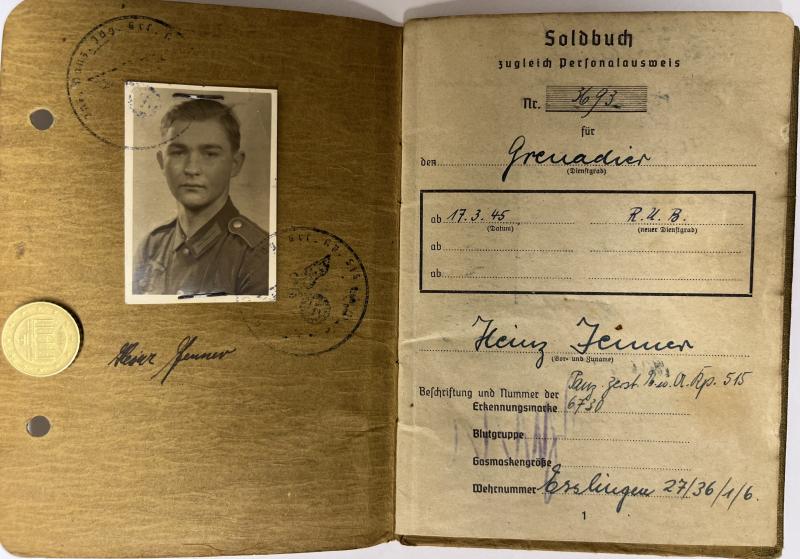 Heinz Jenner
Soldbuch
zugleich Personalausweis
Nr. 3693
für
den Grenadier
(Dienstgrad)
ab 17.3.45 R.U.B.
(Datum) (neuer Dienstgrad)
ab
ab
Heinz Jenner
(Vor- und Zuname)
Beschriftung und Nummer der
Erkennungsmarke
Panz. Zerst. Ers. A. Kp. 515
6730
Blutgruppe
Gasmaskengröße
Wehrnummer Esslingen 27/36/1/6.
1